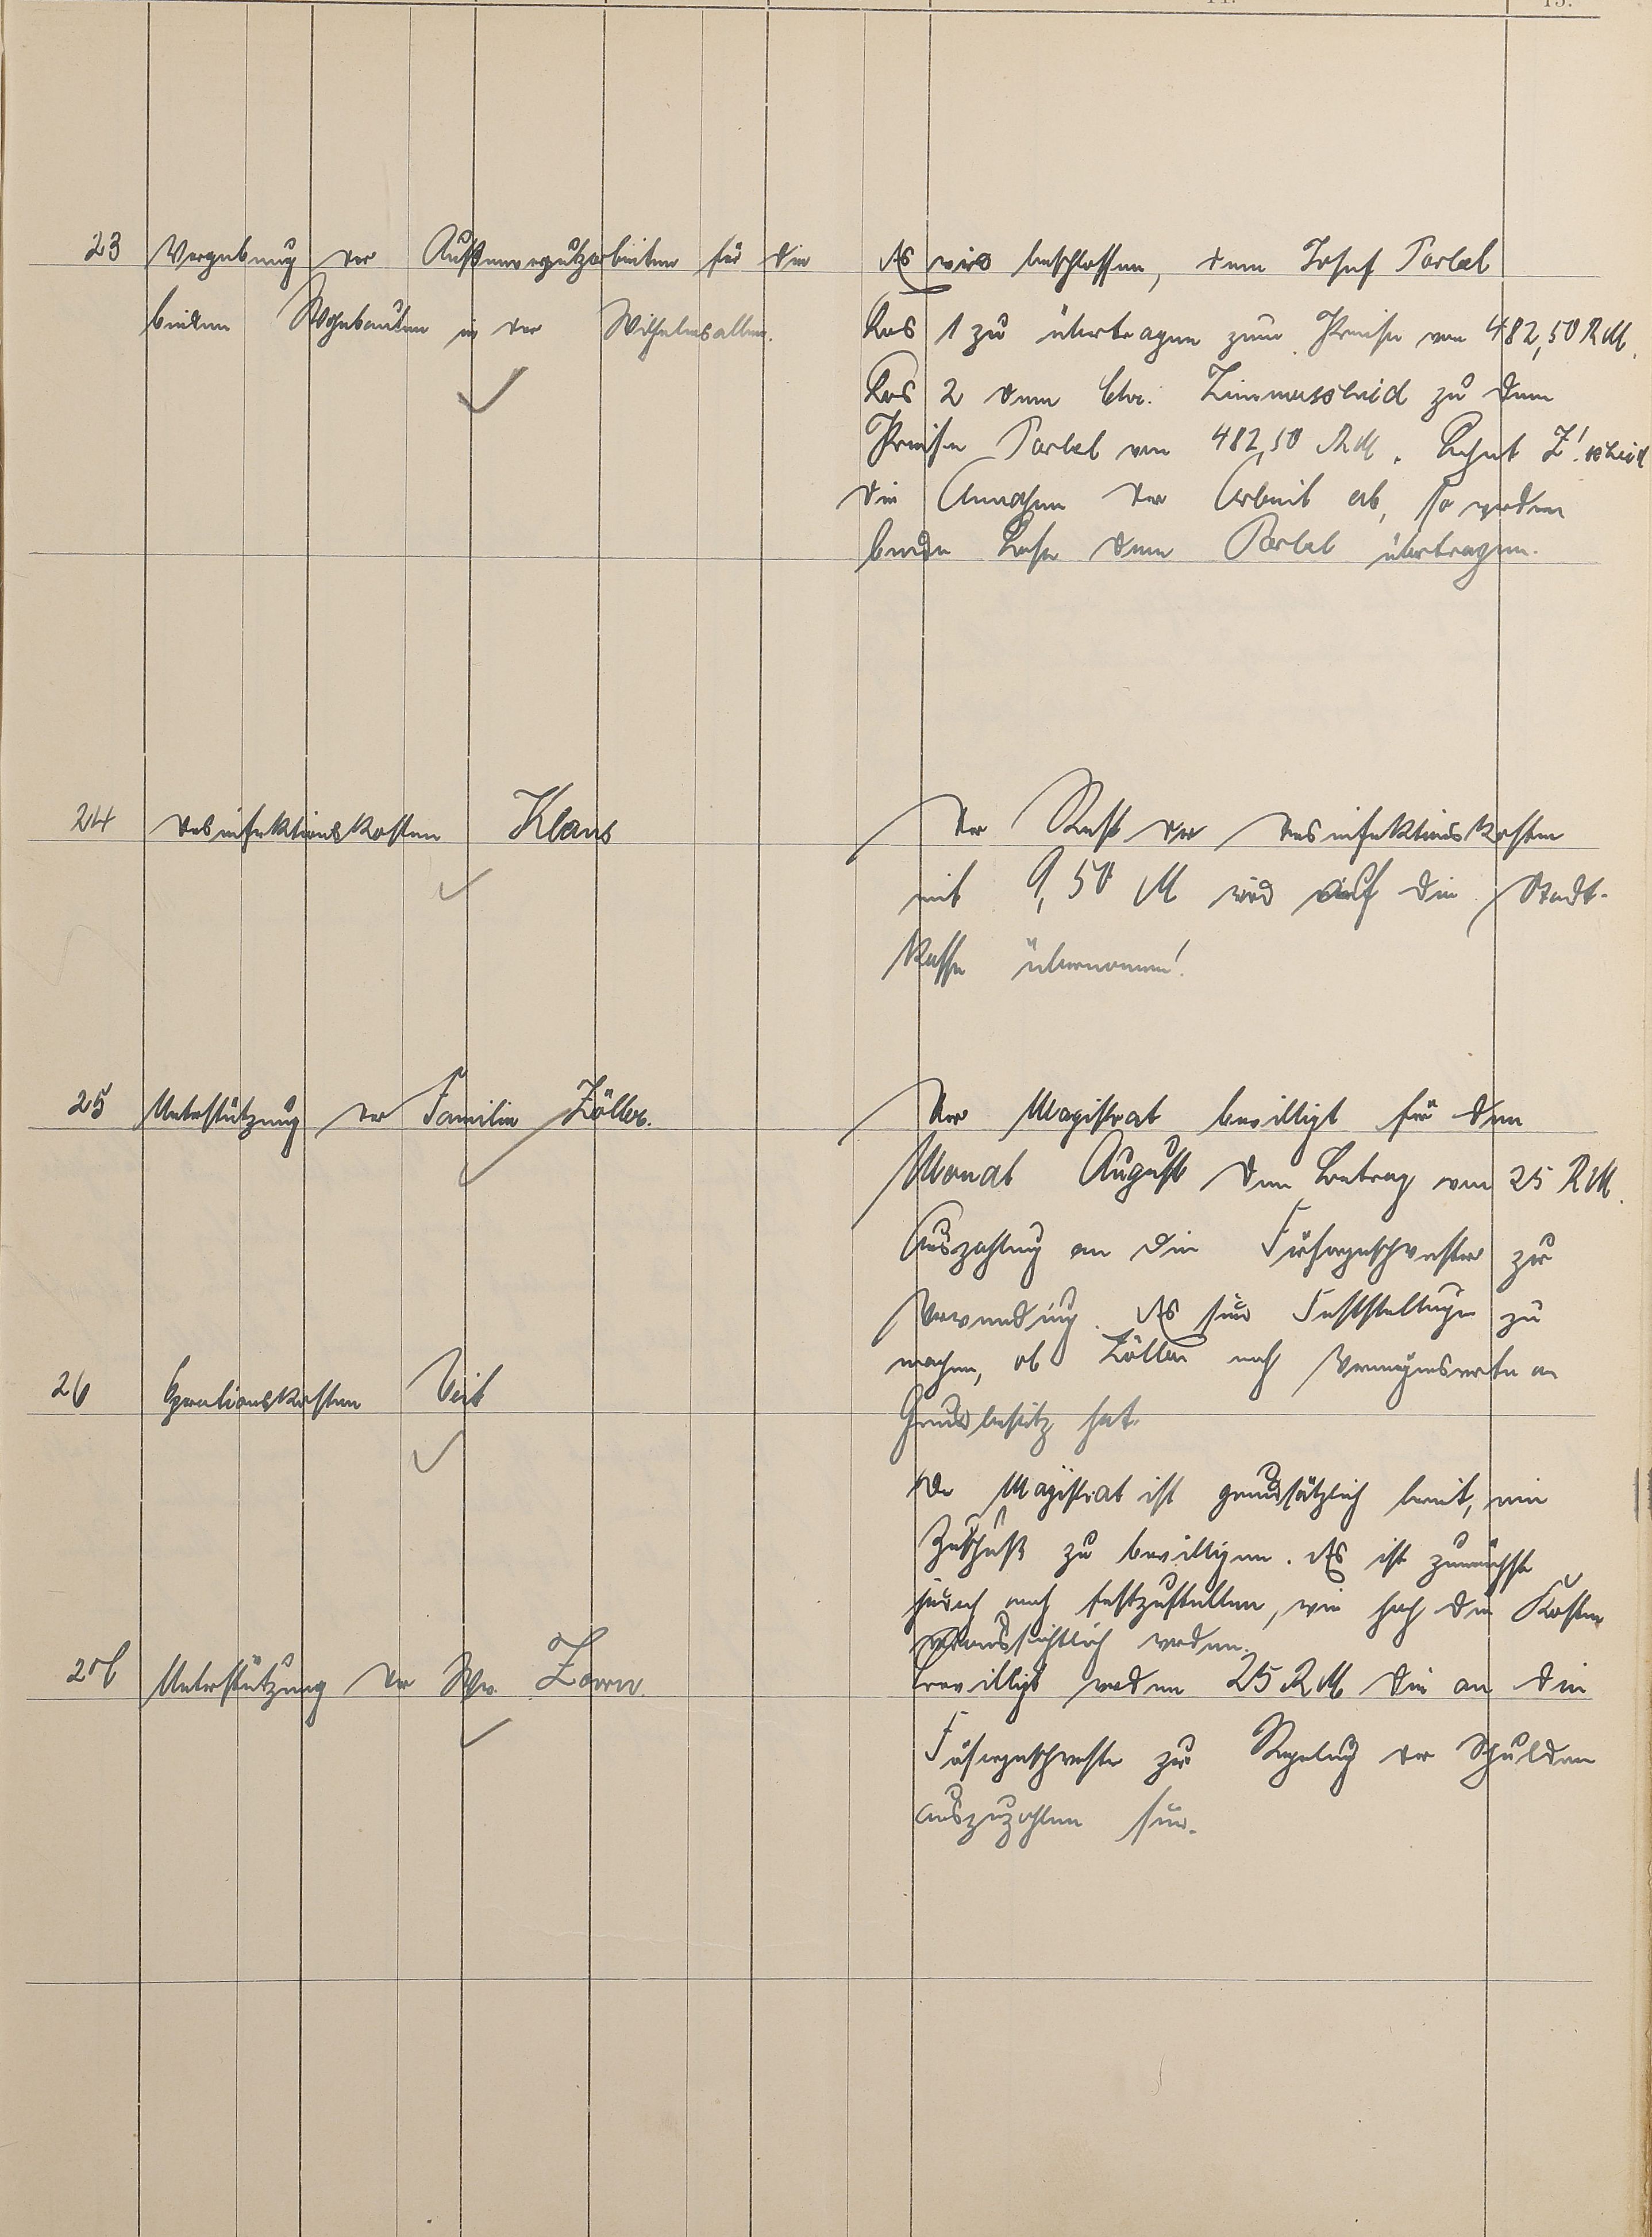 14. 15.
23 Vergebung der Außenverputzarbeiten für die
beiden Wohnbauten in der Wilhelmsallee.
Es wird beschlossen, dem Josef Porbel
Los 1 zu übertragen zum Preise von 482,50 RM.
Los 2 dem Chr. Zimmerscheid zu dem
Preise Porbel von 482,50 RM. Lehnt Z!scheid
die Annahme der Arbeit ab, so werden
beide Lose dem Porbel übertragen.
24 Desinfektionskosten Klaus
Der Rest der Desinfektionskosten
mit 9,50 M wird auf die Stadt-
kasse übernommen!
25 Unterstützung der Familie Zöller.
Der Magistrat bewilligt für den
Monat August den Betrag von 25 RM.
Auszahlung an die Fürsorgeschwester zur
Verwendung. Es sind Feststellungen zu
machen, ob Zöller noch Vermögenswerte an
Grundbesitz hat.
26 Operationskosten Veit
Der Magistrat ist grundsätzlich bereit, ein
Zuschuß zu bewilligen. Es ist zunächst
jedoch noch festzustellen, wie hoch die Kosten
voraussichtlich werden.
26 Unterstützung der Ww. Zorn.
Bewilligt werden 25 RM die an die
Fürsorgeschwester zur Regelung der Schulden
auszuzahlen sind.